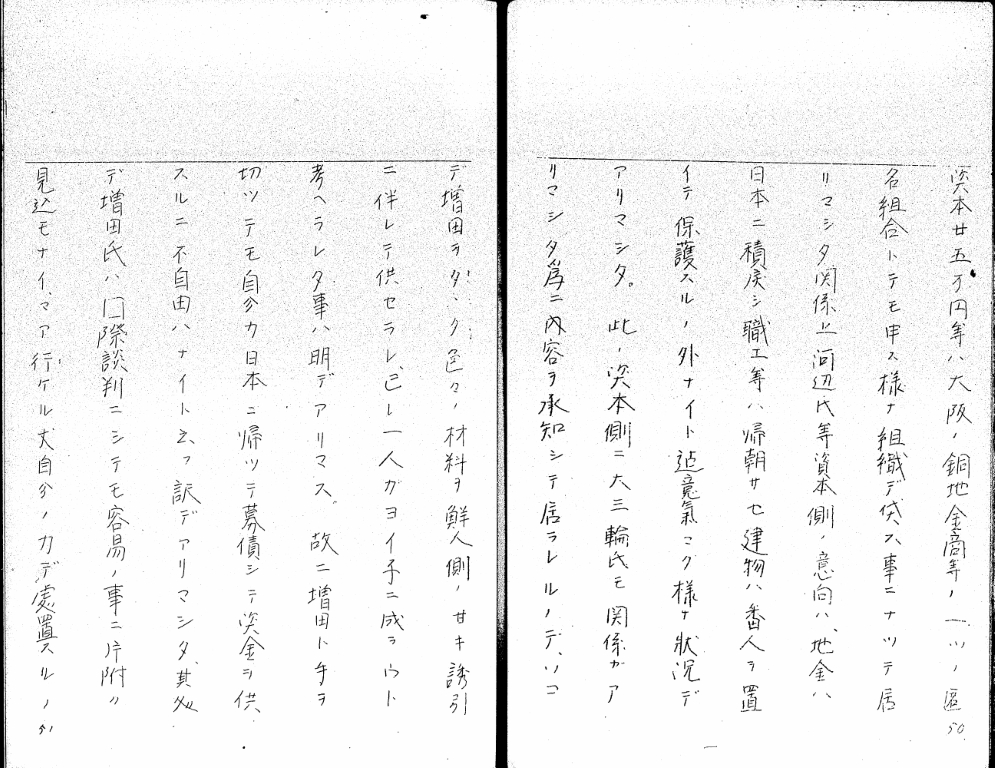 資本廿五万円等ハ大阪ノ銅地金商等ノ一ツノ匿
名組合トテモ申ス様ナ組織デ貸ス事ニナツテ居
リマシタ関係上河辺氏等資本側ノ意向ハ、地金ハ
日本ニ積戻シ職工等ハ帰朝サセ建物ハ番人ヲ置
イテ保護スルノ外ナイト迠意氣マク様ナ狀況デ
アリマシタ。此ノ資本側ニ大三輪氏モ関係ガア
リマシタ爲ニ內容ヲ承知シテ居ラレルノデ、ソコ
50
デ増田ヲタヽク色々ノ材料ヲ鮮人側ノ甘キ誘引
ニ伴レテ供セラレ、己レ一人ガヨイ子ニ成ラウト
考ヘラレタ事ハ明デアリマス。故ニ増田ト手ヲ
切ツテモ自分カ日本ニ帰ツテ募債シテ資金ヲ供
スルニ不自由ハナイト云フ訳デアリマシタ、其処
デ増田氏ハ囗際談判ニシテモ容易ノ事ニ片附ク
見込モナイ、マア行ケル丈自分ノ力デ處置スルノ
51